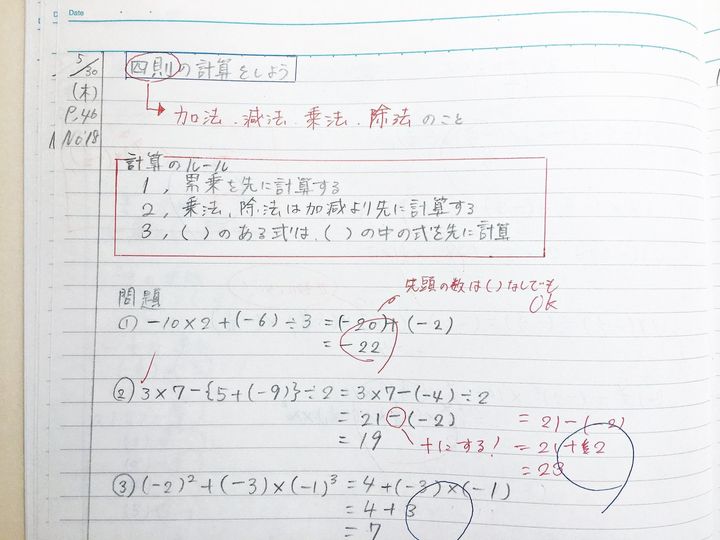 Date
5/30
(木)
P.46
No18
四則の計算をしよう
加法、減法、乗法、除法のこと
計算のルール
1, 累乗を先に計算する
2, 乗法、除法は加減より先に計算する
3, ( )のある式は、( )の中の式を先に計算
問題
先頭の数は( )なしでも
OK
① -10×2+(-6)÷3 =(-20)+(-2)
= -22
② 3×7-{5+(-9)}÷2 = 3×7-(-4)÷2
= 21-(-2)
= 19
+にする!
= 21-(-2)
= 21+2
= 23
③ (-2)²+(-3)×(-1)³ = 4+(-3)×(-1)
= 4+3
= 7